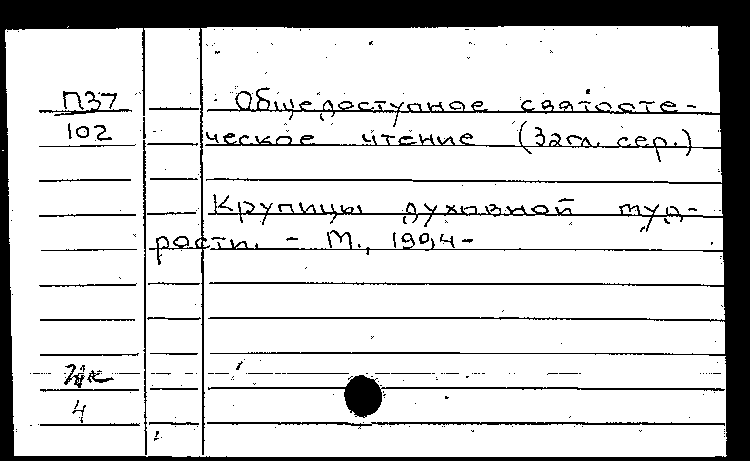 П37
102
Общедоступное святооте-
ческое чтение (Загл. сер.)
Крупицы духовной муд-
рости. - М., 1994-
4